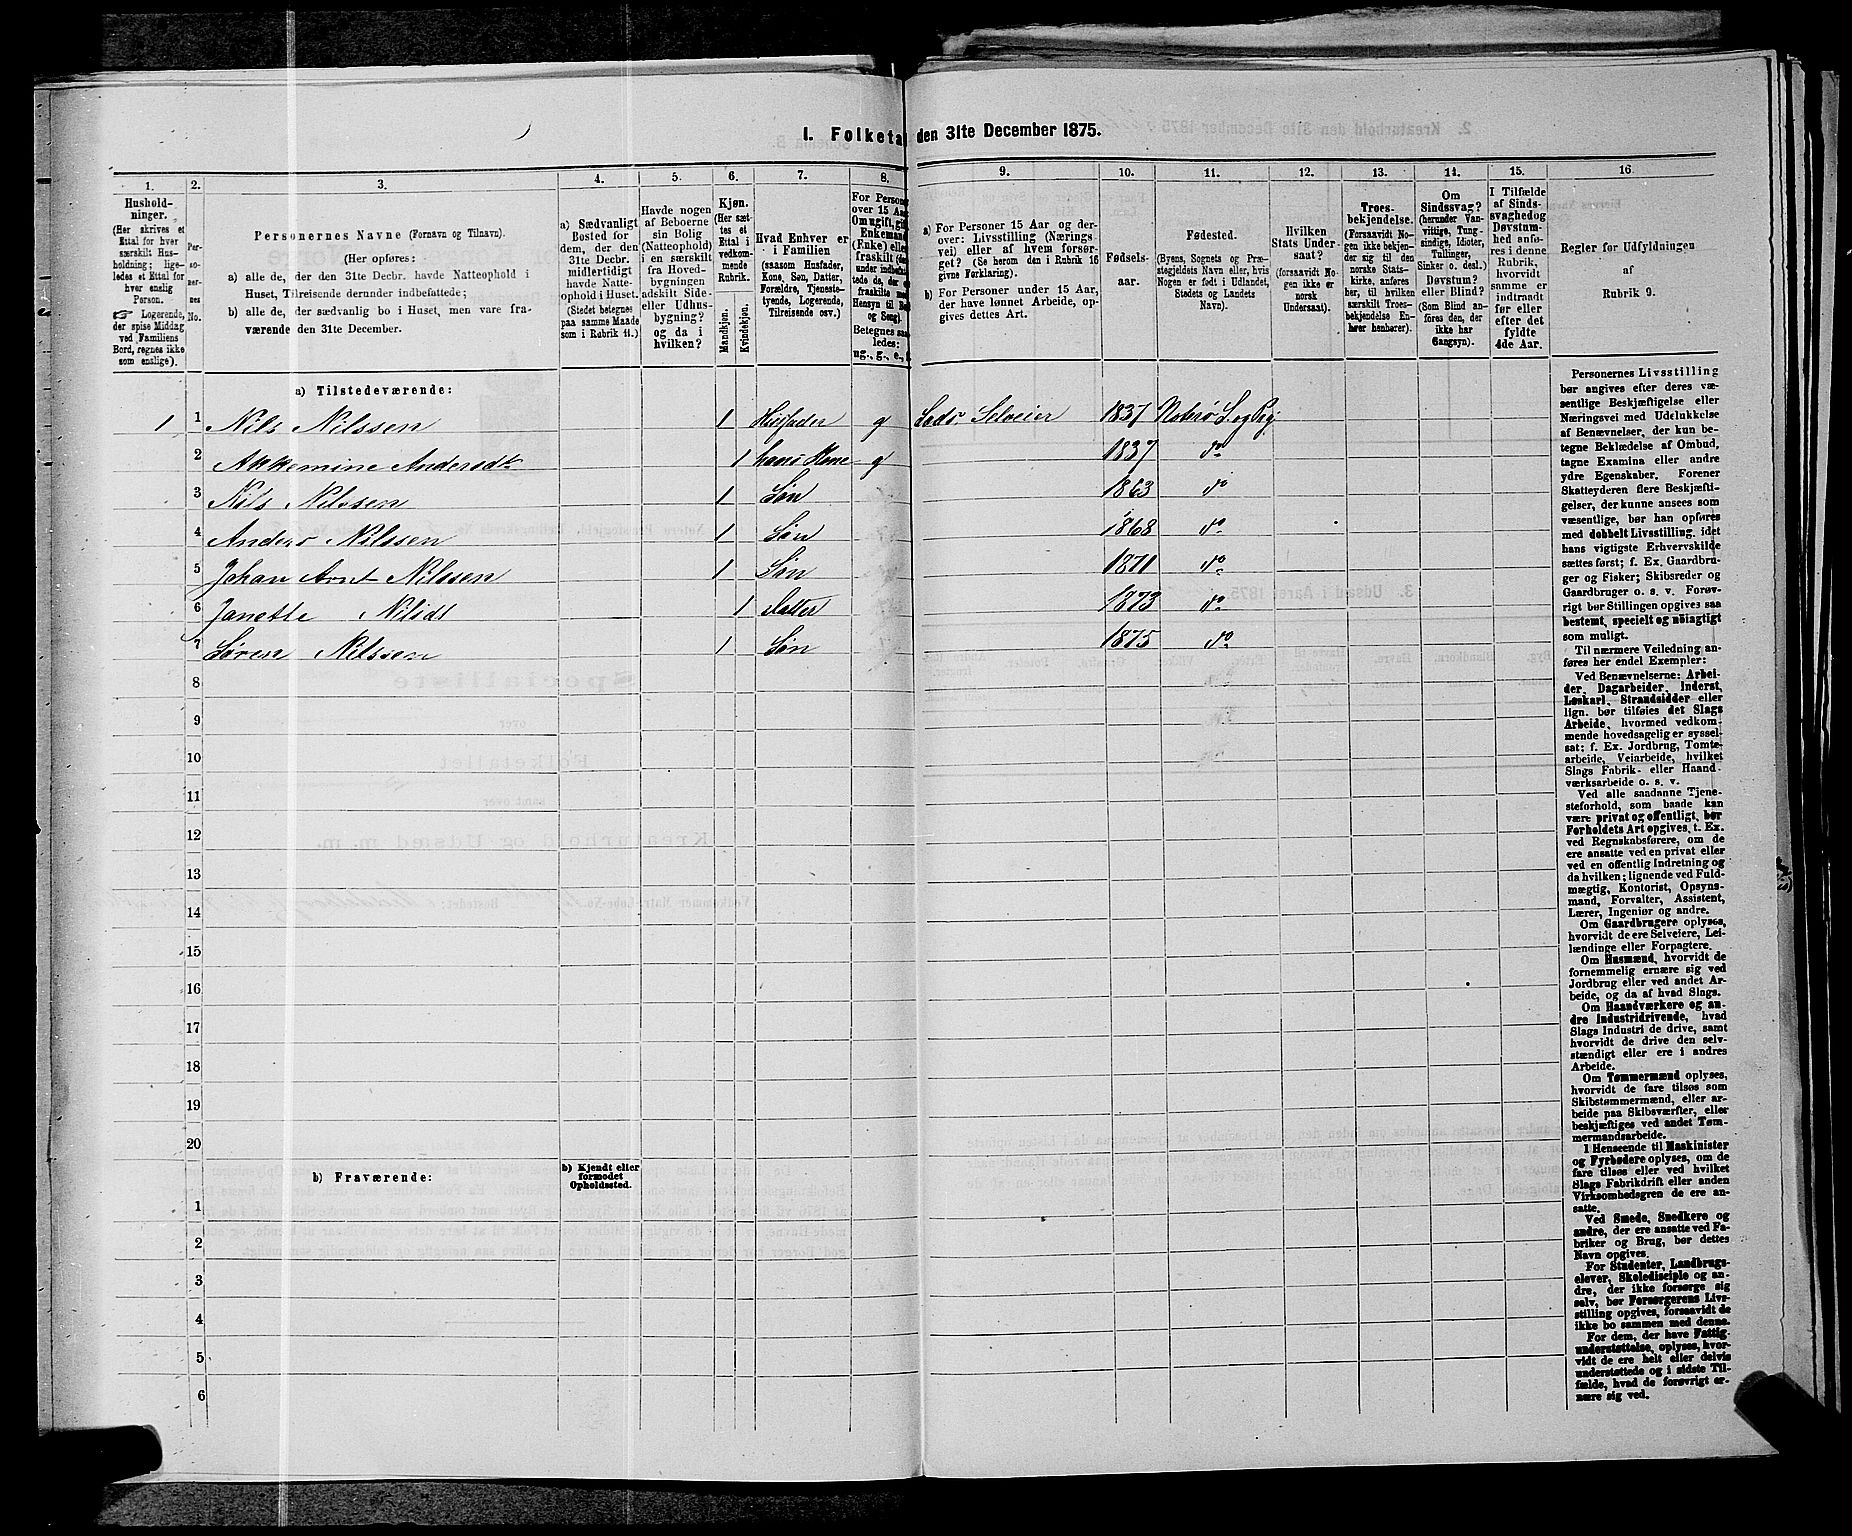 I. Folketal den 31te December 1875.
1. 2. 3. 4. 5. 6. 7. 8. 9. 10. 11. 12. 13. 14. 15. 16.
Hushold-
ninger.
(Her skrives et
Ettal for hver
særskilt Hus-
holdning; lige-
ledes et Ettal for
hver enslig
Person.
☞ Logerende,
der spise Middag
ved Familiens
Bord, regnes ikke
som enslige).
Per-
so-
ner-
nes
No.
Personernes Navne (Fornavn og Tilnavn).
(Her opføres:
a) alle de, der den 31te Decbr. havde Natteophold i
Huset, Tilreisende derunder indbefattede;
b) alle de, der sædvanlig bo i Huset, men vare fra-
værende den 31te December.
a) Sædvanligt
Bosted for
dem, der den
31te Decbr.
midlertidigt
havde Natte-
ophold i Huset.
(Stedet betegnes
paa samme Maade
som i Rubrik 11.)
Havde nogen
af Beboerne
sin Bolig
(Natteophold)
i en særskilt
fra Hoved-
bygningen
adskilt Side-
eller Udhus-
bygning?
og da i
hvilken?
Kjøn.
(Her sæt-
tes et
Ettal i
vedkom-
mende
Rubrik.
Mandkjøn.
Kvindekjøn.
Hvad Enhver er
i Familien
(saasom Husfader,
Kone, Søn, Datter,
Forældre, Tjeneste-
tyende, Logerende,
Tilreisende osv.)
For Persone
over 15 Aar
Om ugift, gift
Enkemand
(Enke) eller
fraskilt
Betegnes saa-
ledes:
ug., g., e.,
a) For Personer 15 Aar og der-
over: Livsstilling (Nærings-
vei) eller af hvem forsør-
get? (Se herom den i Rubrik 16
givne Førklaring).
b) For Personer under 15 Aar,
der have lønnet Arbeide, op-
gives dettes Art.
Fødsels-
aar.
Fødested.
(Byens, Sognets og Præ-
stegjeldets Navn eller, hvis
Nogen er født i Udlandet,
Stedets og Landets
Navn).
Hvilken
Stats Under-
saat?
(forsaavidt No-
gen ikke er
norsk
Undersaat).
Troes-
bekjendelse.
(Forsaavidt No-
gen ikke bekjen-
der sig til den
norske Stats-
kirke, anføres
her, til hvilken
særskilt Troes-
bekjendelse En-
hver henhører).
Om
Sindssvag?
(herunder Van-
vittige, Tung-
sindige, Idioter,
Tullinger,
Sinker o. desl.)
Døvstum?
eller Blind?
(Som Blind an-
føres den, der
ikke har
Gangsyn).
I Tilfælde
af Sinds-
svaghed og
Døvstum-
hed anfø-
res i denne
Rubrik,
hvorvidt
samme er
indtraadt
før eller
efter det
fyldte
4de Aar.
Regler for Udfyldningen
af
Rubrik 9.
a) Tilstedeværende:
1 1 Nils Nilssen 1 Husfader g Selveier 1837
2 Akkemine Andersdt 1 hans Kone g 1837 do
3 Nils Nilssen 1 Søn 1863 do
4 Anders Nilssen 1 Søn 1868 do
5 Johan Arnt Nilssen 1 Søn 1871 do
6 Janette Nilsdt 1 Datter 1873 do
7 Søren Nilssen 1 Søn 1875 do
8
9
10
11
12
13
14
15
16
17
18
19
20
b) Fraværende:
b) Kjendt eller
formodet
Opholdssted.
1
2
3
4
5
6
Personernes Livsstilling
bør angives efter deres væ-
sentlige Beskjæftigelse eller
Næringsvei med Udelukkelse
af Benævnelser, der kun be-
tegne Beklædelse af Ombud,
tagne Examina eller andre
ydre Egenskaber. Forener
Skatteyderen flere Beskjæfti-
gelser, der kunne ansees som
væsentlige, bør han opføres
med dobbelt Livsstilling, idet
hans vigtigste Erhvervskilde
sættes først; f. Ex. Gaardbru-
ger og Fisker; Skibsreder og
Gaardbruger o. s. v. Forøv-
rigt bør Stillingen opgives saa
bestemt, specielt og nöiagtigt
som muligt.
Til nærmere Veiledning an-
føres her endel Exempler:
Ved Benævnelserne: Arbei-
der, Dagarbeider, Inderst,
Løskarl, Strandsidder eller
lign. bør tilføies det Slags
Arbeide, hvormed vedkom-
mende hovedsagelig er syssel-
sat; f. Ex. Jordbrug, Tomte-
arbeide, Veiarbeide, hvilket
Slags Fabrik- eller Haand-
værksarbeide o. s. v.
Ved alle saadanne Tjene-
steforhold, som baade kan
være privat og offentligt, bør
Forholdets Art opgives, t. Ex.
ved Regnskabsførere, om de
ere ansatte ved en privat eller
ved en offentlig Indretning og
da hvilken; lignende ved Fuld-
mægtig, Kontorist, Opsyns-
mand, Forvalter, Assistent,
Lærer, Ingeniør og andre.
Om Gaardbrugere oplyses,
hvorvidt de ere Selveiere, Lei-
lændinge eller Forpagtere.
Om Husmænd, hvorvidt de
fornemmelig ernære sig ved
Jordbrug eller ved andet Ar-
beide, og da af hvad Slags.
Om Haandværkere og an-
dre Industridrivende, hvad
Slags Industri de drive, samt
hvorvidt de drive den selv-
stændigt eller ere i andres
Arbeide.
Om Tømmermænd oplyses,
hvorvidt de fare tilsøs som
Skibstømmermænd, eller ar-
beide paa Skibsværfter, eller
beskjæftiges ved andet Tøm-
mermandsarbeide.
I Henseende til Maskinister
og Fyrbødere oplyses, om de
fare tilsøs eller ved hvilket
Slags Fabrikdrift eller anden
Virksomhedsgren de ere an-
satte.
Ved Smede, Snedkere og
andre, der ere ansatte ved Fa-
briker og Brug, bør dettes
Navn opgives.
For Studenter, Landbrugs-
elever, Skoledisciple og an-
dre, der ikke forsørge sig
selv, bør Forsørgerens Livs-
stilling opgives, forsaavidt de
ikke bo sammen med denne.
For dem, der have Fattig-
understøttelse, oplyses, hvor-
vidt de ere helt eller delvis
understøttede og i sidste Til-
fælde, hvad de forøvrigt er-
nære sig ved.